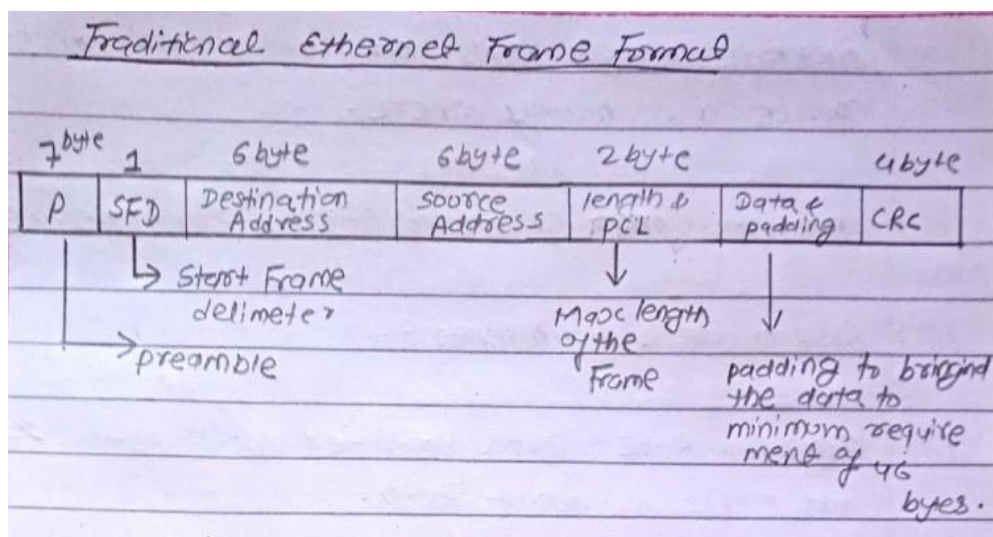 Traditional Ethernet Frame Format
7 byte 1 6 byte 6 byte 2 byte 4 byte
P SFD Destination Address Source Address length & PCL Data & padding CRC
Start Frame
delimeter
preamble
Max length
of the
Frame
padding to bringind
the data to
minimum require
ment of 46
bytes.